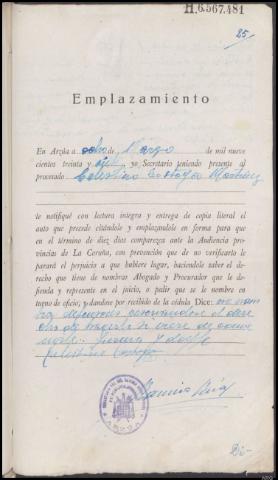 H.6.567.481
25
Emplazamiento
En Arzúa a ocho de Marzo de mil nueve
cientos treinta y ocho yo Secretario teniendo presente al
procesado Celestino Martínez
le notifiqué con lectura íntegra y entrega de copia literal el
auto que precede citándole y emplazándole en forma para que
en el término de diez días comparezca ante la Audiencia pro-
vincias de La Coruña, con prevención que de no verificarlo le
parará el perjuicio a que hubiere lugar, haciéndole saber el de-
recho que tiene de nombrar Abogado y Procurador que le de-
fienda y represente en el juicio, o palir que se le nombre en
turno de oficio; y dandose por recibido de la cédula, Dice: no nom
bra defensores reservándose el dere
cho de hacerlo
Firma y doy fe
Celestino
ARZUA
Di-